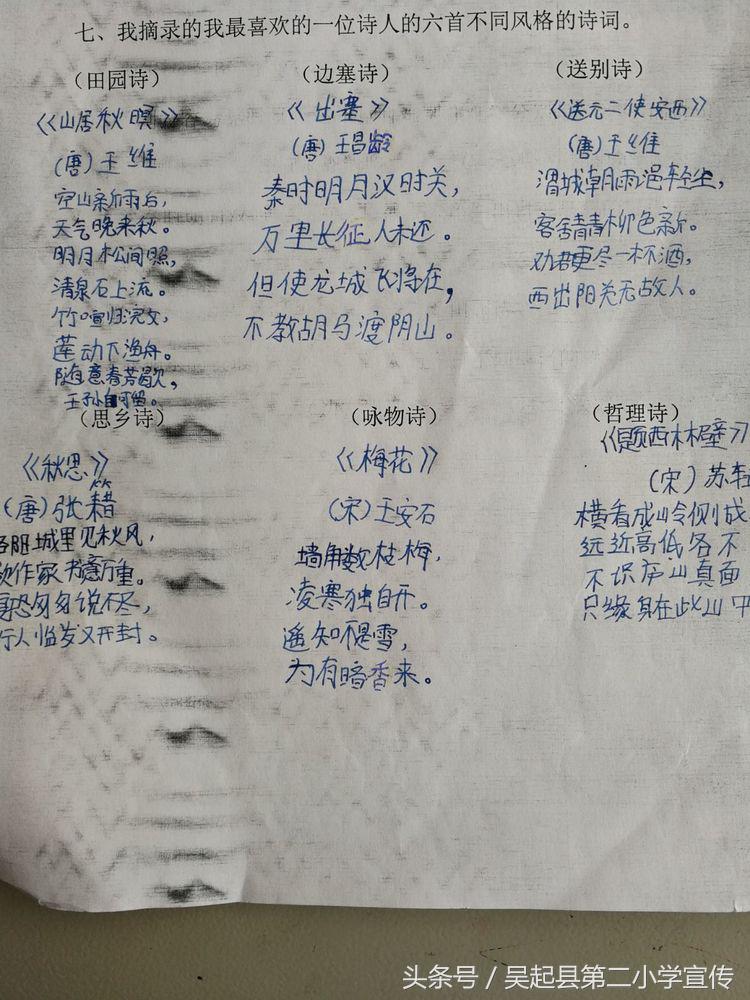 七、我摘录的我最喜欢的一位诗人的六首不同风格的诗词。
（田园诗）
《山居秋暝》
(唐) 王维
空山新雨后,
天气晚来秋。
明月松间照,
清泉石上流。
竹喧归浣女,
莲动下渔舟。
随意春芳歇,
王孙自可留。
（边塞诗）
《出塞》
(唐) 王昌龄
秦时明月汉时关,
万里长征人未还。
但使龙城飞将在,
不教胡马渡阴山。
（送别诗）
《送元二使安西》
(唐) 王维
渭城朝雨浥轻尘,
客舍青青柳色新。
劝君更尽一杯酒,
西出阳关无故人。
（思乡诗）
《秋思》
(唐) 张籍
洛阳城里见秋风,
欲作家书意万重。
复恐匆匆说不尽,
行人临发又开封。
（咏物诗）
《梅花》
(宋) 王安石
墙角数枝梅,
凌寒独自开。
遥知不是雪,
为有暗香来。
（哲理诗）
《题西林壁》
(宋) 苏轼
横看成岭侧成
远近高低各不
不识庐山真面
只缘身在此山中
头条号 / 吴起县第二小学宣传